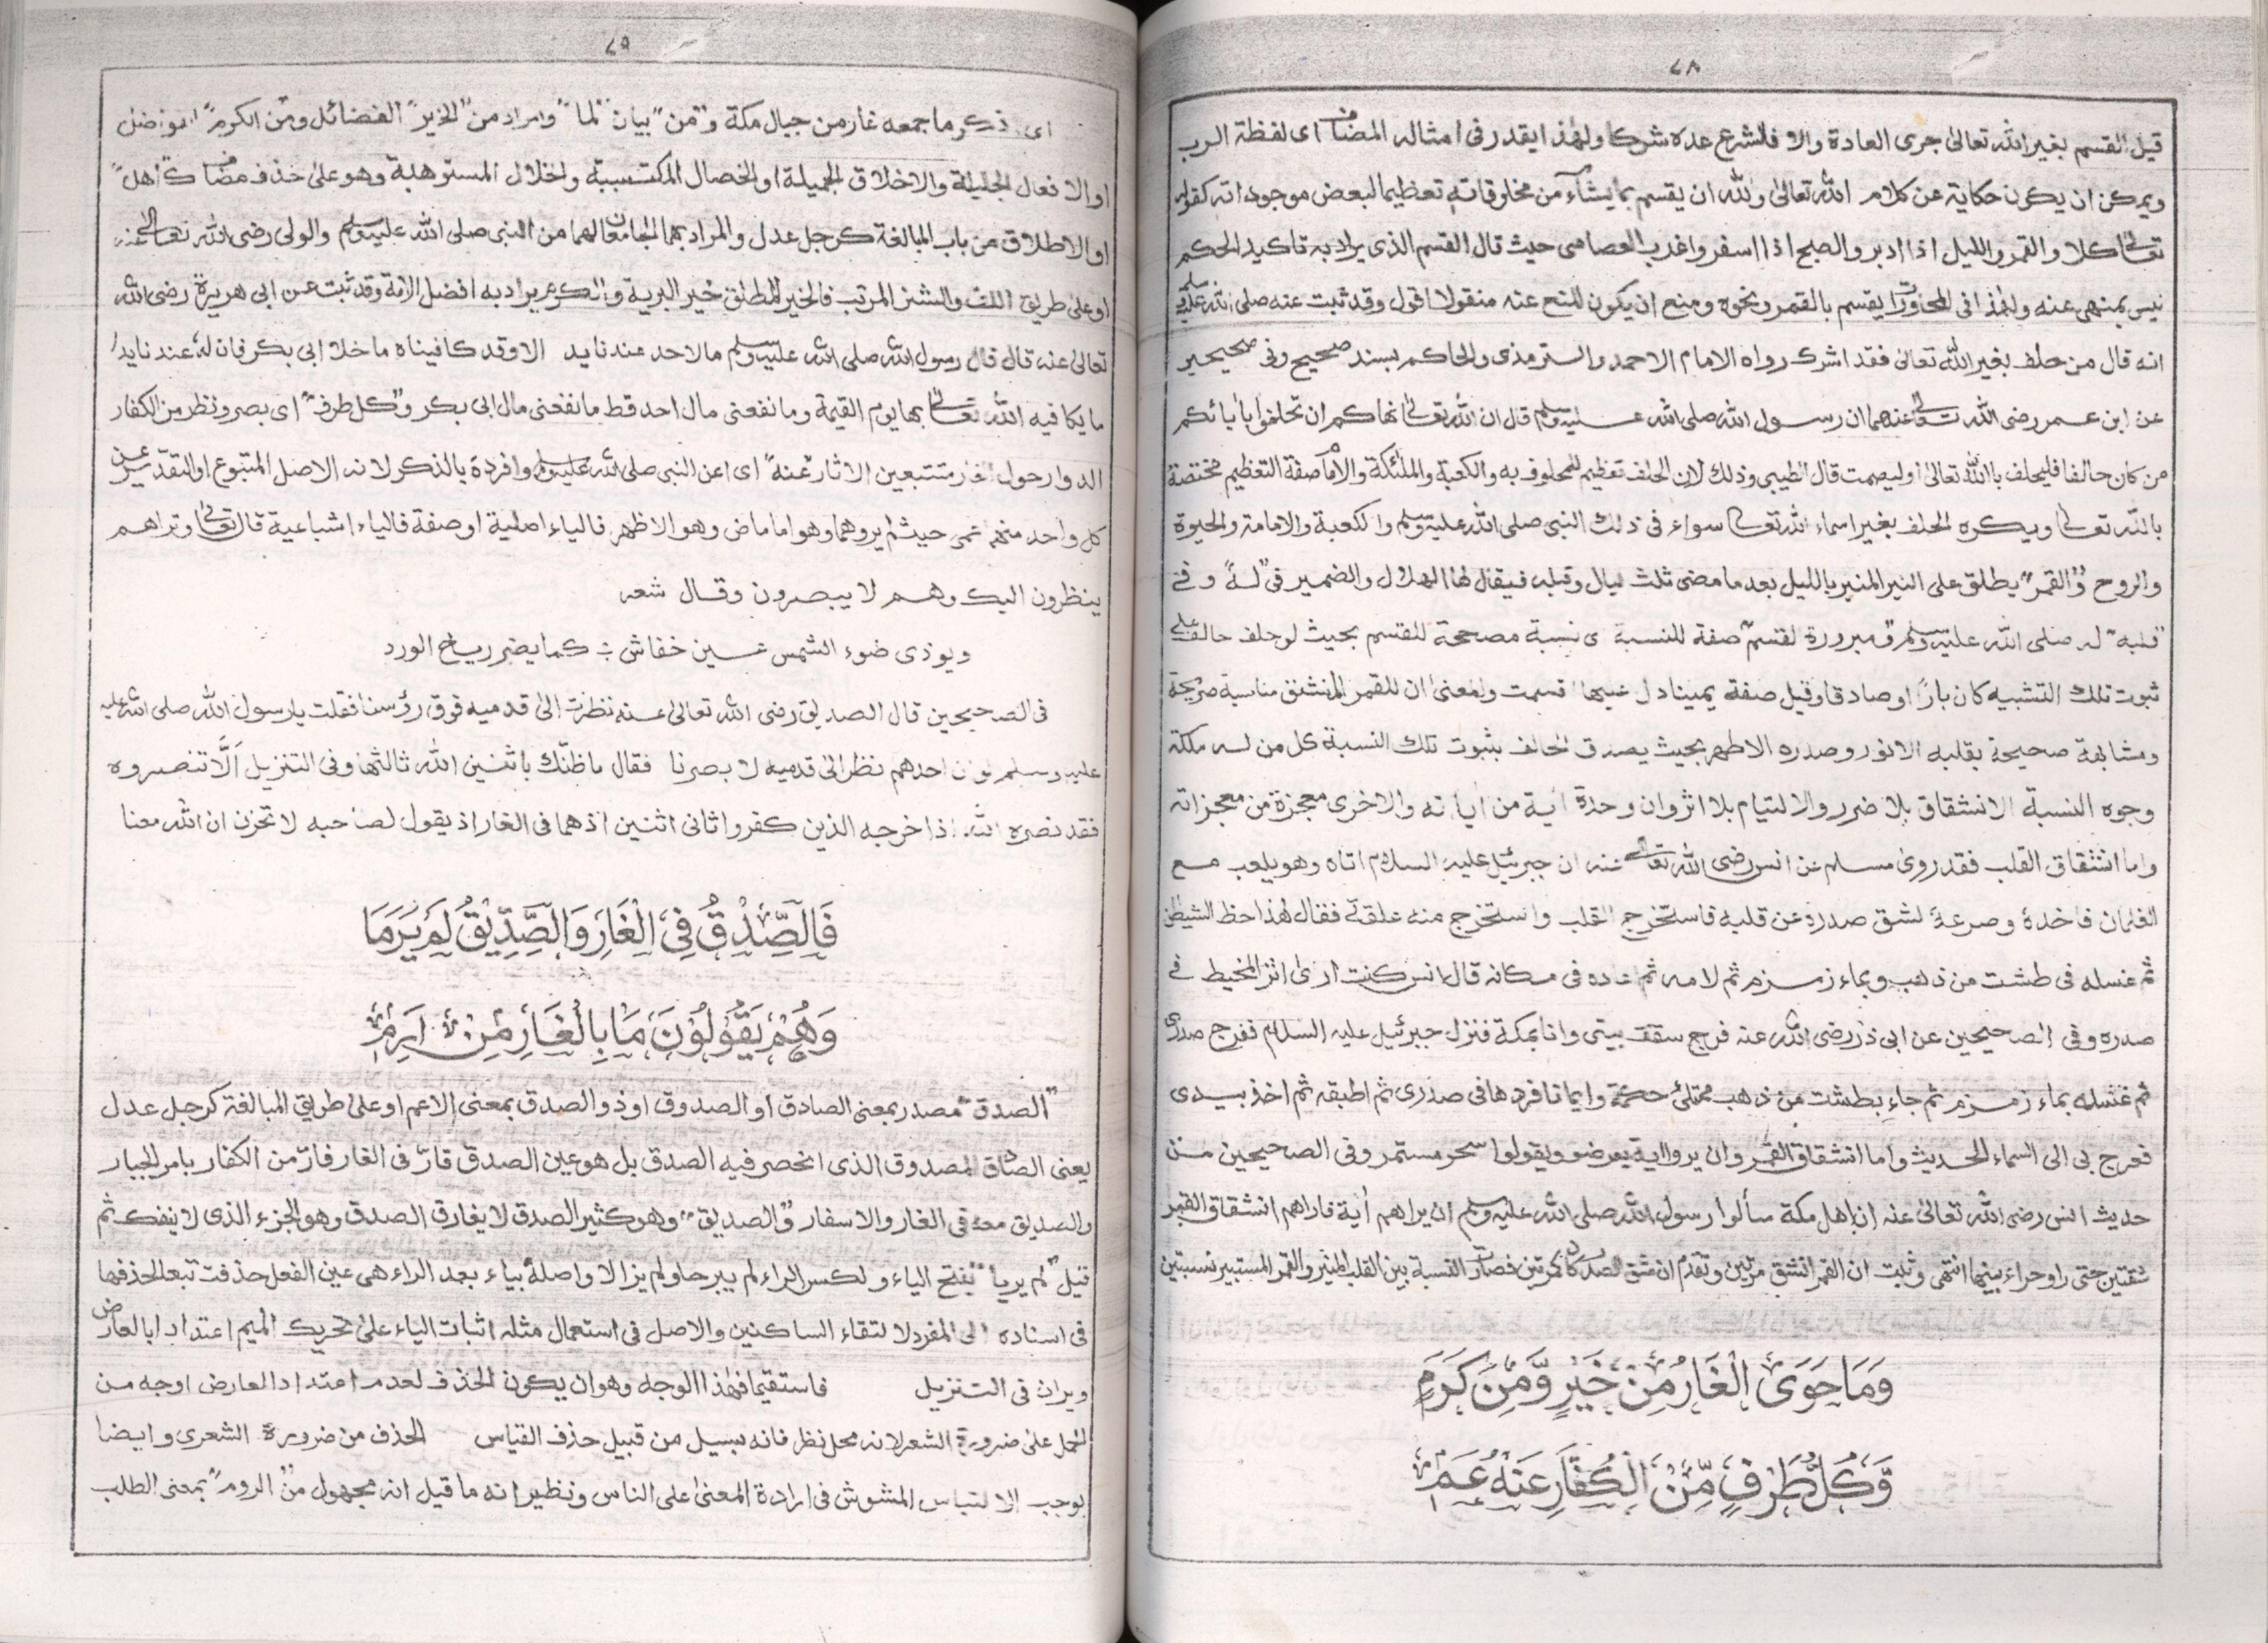 ٧٨
قيل القسم بغير الله تعالى جرى العادة والا فالشرع عده شركا ولهٰذا يقدر فى امثاله المضاف اى لفظة الرب
ويمكن ان يكون حكاية عن كلام الله تعالىٰ ولله ان يقسم بما يشآء من مخلوقاته تعظيما لبعض موجوداته كقوله
تعالىٰ كلا والقمر والليل اذا ادبر والصبح اذا اسفر واغرب العصامى حيث قال القسم الذى يراد به تاكيد الحكم
ليس بمنهى عنه ولهٰذا فى المحاورات يقسم بالقمر ونحوه ومنع ان يكون المنع عنه منقولا اقول وقد ثبت عنه صلى الله عليه وسلم
انه قال من حلف بغير الله تعالىٰ فقد اشرك رواه الامام الاحمد والترمذى والحاكم بسند صحيح وفى صحيحين
عن ابن عمر رضى الله تعالىٰ عنهما ان رسول الله صلى الله عليه وسلم قال ان الله تعالىٰ نهاكم ان تحلفوا بأبائكم
من كان حالفا فليحلف بالله تعالىٰ او ليصمت قال الطيبى وذلك لان الحلف تعظيم للمحلوف به والكعبة والملٰئكة والامام صفة التعظيم مختصة
بالله تعالىٰ ويكره الحلف بغير اسماء الله تعالىٰ سواء فى ذلك النبى صلى الله عليه وسلم والكعبة والامامة والحيوة
والروح و"القمر" يطلق على النير المنير بالليل بعد ما مضى ثلث ليال وقبله فيقال لها الهلال والضمير فى "له" و فى
"قلبه" له صلى الله عليه وسلم و مبرورة لقسم صفة للنسبة اى نسبة مصححة للقسم بحيث لو حلف حالف على
ثبوت تلك التشبيه كان بارًا او صادقا وقيل صفة يمينا دل عليها اقسمت والمعنىٰ ان للقمر المنشق مناسبة صريحة
ومشابهة صحيحة بقلبه الانور وصدره الاطهر بحيث يصدق الحالف بثبوت تلك النسبة كل من له ملكة
وجوه النسبة الانشقاق بلا ضرر والالتيام بلا اثر وان وحدة أية من أياته والاخرى معجزة من معجزاته
واما انشقاق القلب فقد روى مسلم عن انس رضى الله تعالىٰ عنه ان جبرئيل عليه السلام اتاه وهو يلعب مع
الغلمان فاخذهٔ وصرعهٔ لشق صدره عن قلبه فاستخرج القلب واستخرج منه علقة فقال هٰذا حظ الشيطٰن
ثم غسله فى طشت من ذهب وبماء زمزم ثم لامه ثم اعاده فى مكانه قال انس كنت ارىٰ اثر المخيط فى
صدره وفى الصحيحين عن ابى ذر رضى الله عنه فرج سقف بيتى وانا بمكة فنزل جبرئيل عليه السلام ففرج صدرى
ثم غسله بماء زمزم ثم جاء بطشت من ذهب ممتلئ حكمة وايمانا فردها فى صدرى ثم اطبقه ثم اخذ بيدى
فعرج بى الى السماء الحديث واما انشقاق القمر وان يروا اية يعرضوا ويقولوا سحر مستمر وفى الصحيحين من
حديث انس رضى الله تعالىٰ عنه ان اهل مكة سألوا رسول الله صلى الله عليه وسلم ان يراهم أية فاراهم انشقاق القمر
شقتين حتى راو حراء بينهما انتهى وثبت ان القمر انشق مرتين وتقدم ان شق الصدر كان مرتين فصارت النسبة بين القلب المنير والقمر المستنير نسبتين
وَمَا حَوَى الْغَارُ مِنْ خَيْرٍ وَّمِنْ كَرَمٍ
وَّكُلُّ طَرْفٍ مِّنَ الْكُفَّارِ عَنْهُ عَمٖ
٧٩
اى ذكر ما جمعه غار من جبال مكة و"من" بيان "لما" والمراد من "الخير" الفضائل ومن "الكرم" الفواضل
او الافعال الجليلة والاخلاق الجميلة او الخصال المكتسبة والخلال المستوهبة وهو على حذف مضاف كاهل"
او الاطلاق من باب المبالغة كرجل عدل والمراد بهما الجامعان لهما من النبى صلى الله عليه وسلم والولى رضى الله تعالىٰ عنه
او على طريق اللف والنشر المرتب فالخير المطلق خير البرية والكرم يراد به افضل الامة وقد ثبت عن ابى هريرة رضى الله
تعالىٰ عنه قال قال رسول الله صلى الله عليه وسلم ما لاحد عندنا يد الا وقد كافيناه ما خلا ابى بكر فان له عندنا يدا
ما يكافيه الله تعالىٰ بها يوم القيمة وما نفعنى مال احد قط ما نفعنى مال ابى بكر و"كل طرف" اى بصر ونظر من الكفار
الدوار حول الغار متتبعين الاثار "عنه" اى عن النبى صلى الله عليه وسلم وافرده بالذكر لانه الاصل المتبوع او التقدير عن
كل واحد منهم عمى حيث لم يروهما وهو اما ماض وهو الاظهر فالياء اصلية او صفة فالياء اشباعية قال تعالىٰ وتراهم
ينظرون اليك وهم لا يبصرون وقال شعر
ويوذى ضوء الشمس عين خفاش ؞ كما يضر رياح الورد
فى الصحيحين قال الصديق رضى الله تعالىٰ عنه نظرت الىٰ قدميه فوق رؤسنا فقلت يا رسول الله صلى الله عليه
عليه وسلم لو ان احدهم نظر الىٰ قدميه لا بصرنا فقال ما ظنّك باثنين الله ثالثهما وفى التنزيل اَلَّا تنصروه
فقد نصره الله اذا خرجه الذين كفروا ثانى اثنين اذ هما فى الغار اذ يقول لصاحبه لا تحزن ان الله معنا
فَالصِّدْقُ فِى الْغَارِ وَالصِّدِّيْقُ لَمْ يَرِمَا
وَهُمْ يَقُوْلُوْنَ مَا بِالْغَارِ مِنْ اَرِمٖ
"الصدق" مصدر بمعنى الصادق او الصدوق او ذو الصدق بمعنى الاعم او على طريق المبالغة كرجل عدل
يعنى الصادق المصدوق الذى انحصر فيه الصدق بل هو عين الصدق قارّ فى الغار فارّ من الكفار بامر الجبار
والصديق معه فى الغار والاسفار و"الصديق" وهو كثير الصدق لا يفارق الصدق وهو الجزء الذى لا ينفك ثم
قيل "لم يريا" بفتح الياء ولكسر الراء لم يبرحا ولم يزالا واصله بياء بعد الراء هى عين الفعل حذفت تبعا لحذفها
فى اسناده الى المفرد لالتقاء الساكنين والاصل فى استعمال مثله اثبات الياء على تحريك الميم اعتدادا بالعارض
ويران فى التنزيل فاستقيما فهٰذا الوجه وهو ان يكون الحذف لعدم اعتداد العارض اوجه من
الحمل على ضرورة الشعر لانه محل نظر فانه ليسيل من قبيل حذف القياس الحذف من ضرورة الشعرى وايضا
يوجب الالتباس المشوش فى ارادة المعنى على الناس ونظيرا نه ما قيل انه مجهول من "الروم" بمعنى الطلب